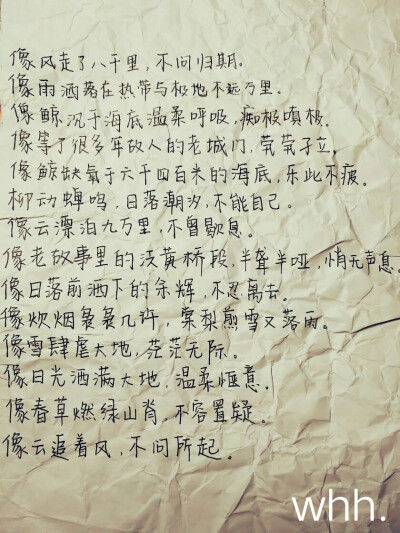 像风走了八千里，不问归期。
像雨洒落在热带与极地不远万里。
像鲸沉于海底温柔呼吸，痴极嗔极。
像等了很多年故人的老城门，茕茕孑立。
像鲸缺氧于六千四百米的海底，乐此不疲。
柳动蝉鸣，日落潮汐，不能自己。
像云漂泊九万里，不曾歇息。
像老故事里的泛黄桥段，半聋半哑，悄无声息。
像日落前洒下的余辉，不忍离去。
像炊烟袅袅几许，棠梨煎雪又落雨。
像雪肆虐大地，茫茫无际。
像日光洒满大地，温柔惬意。
像春草燃绿山肖，不容置疑。
像云追着风，不问所起。
whh.